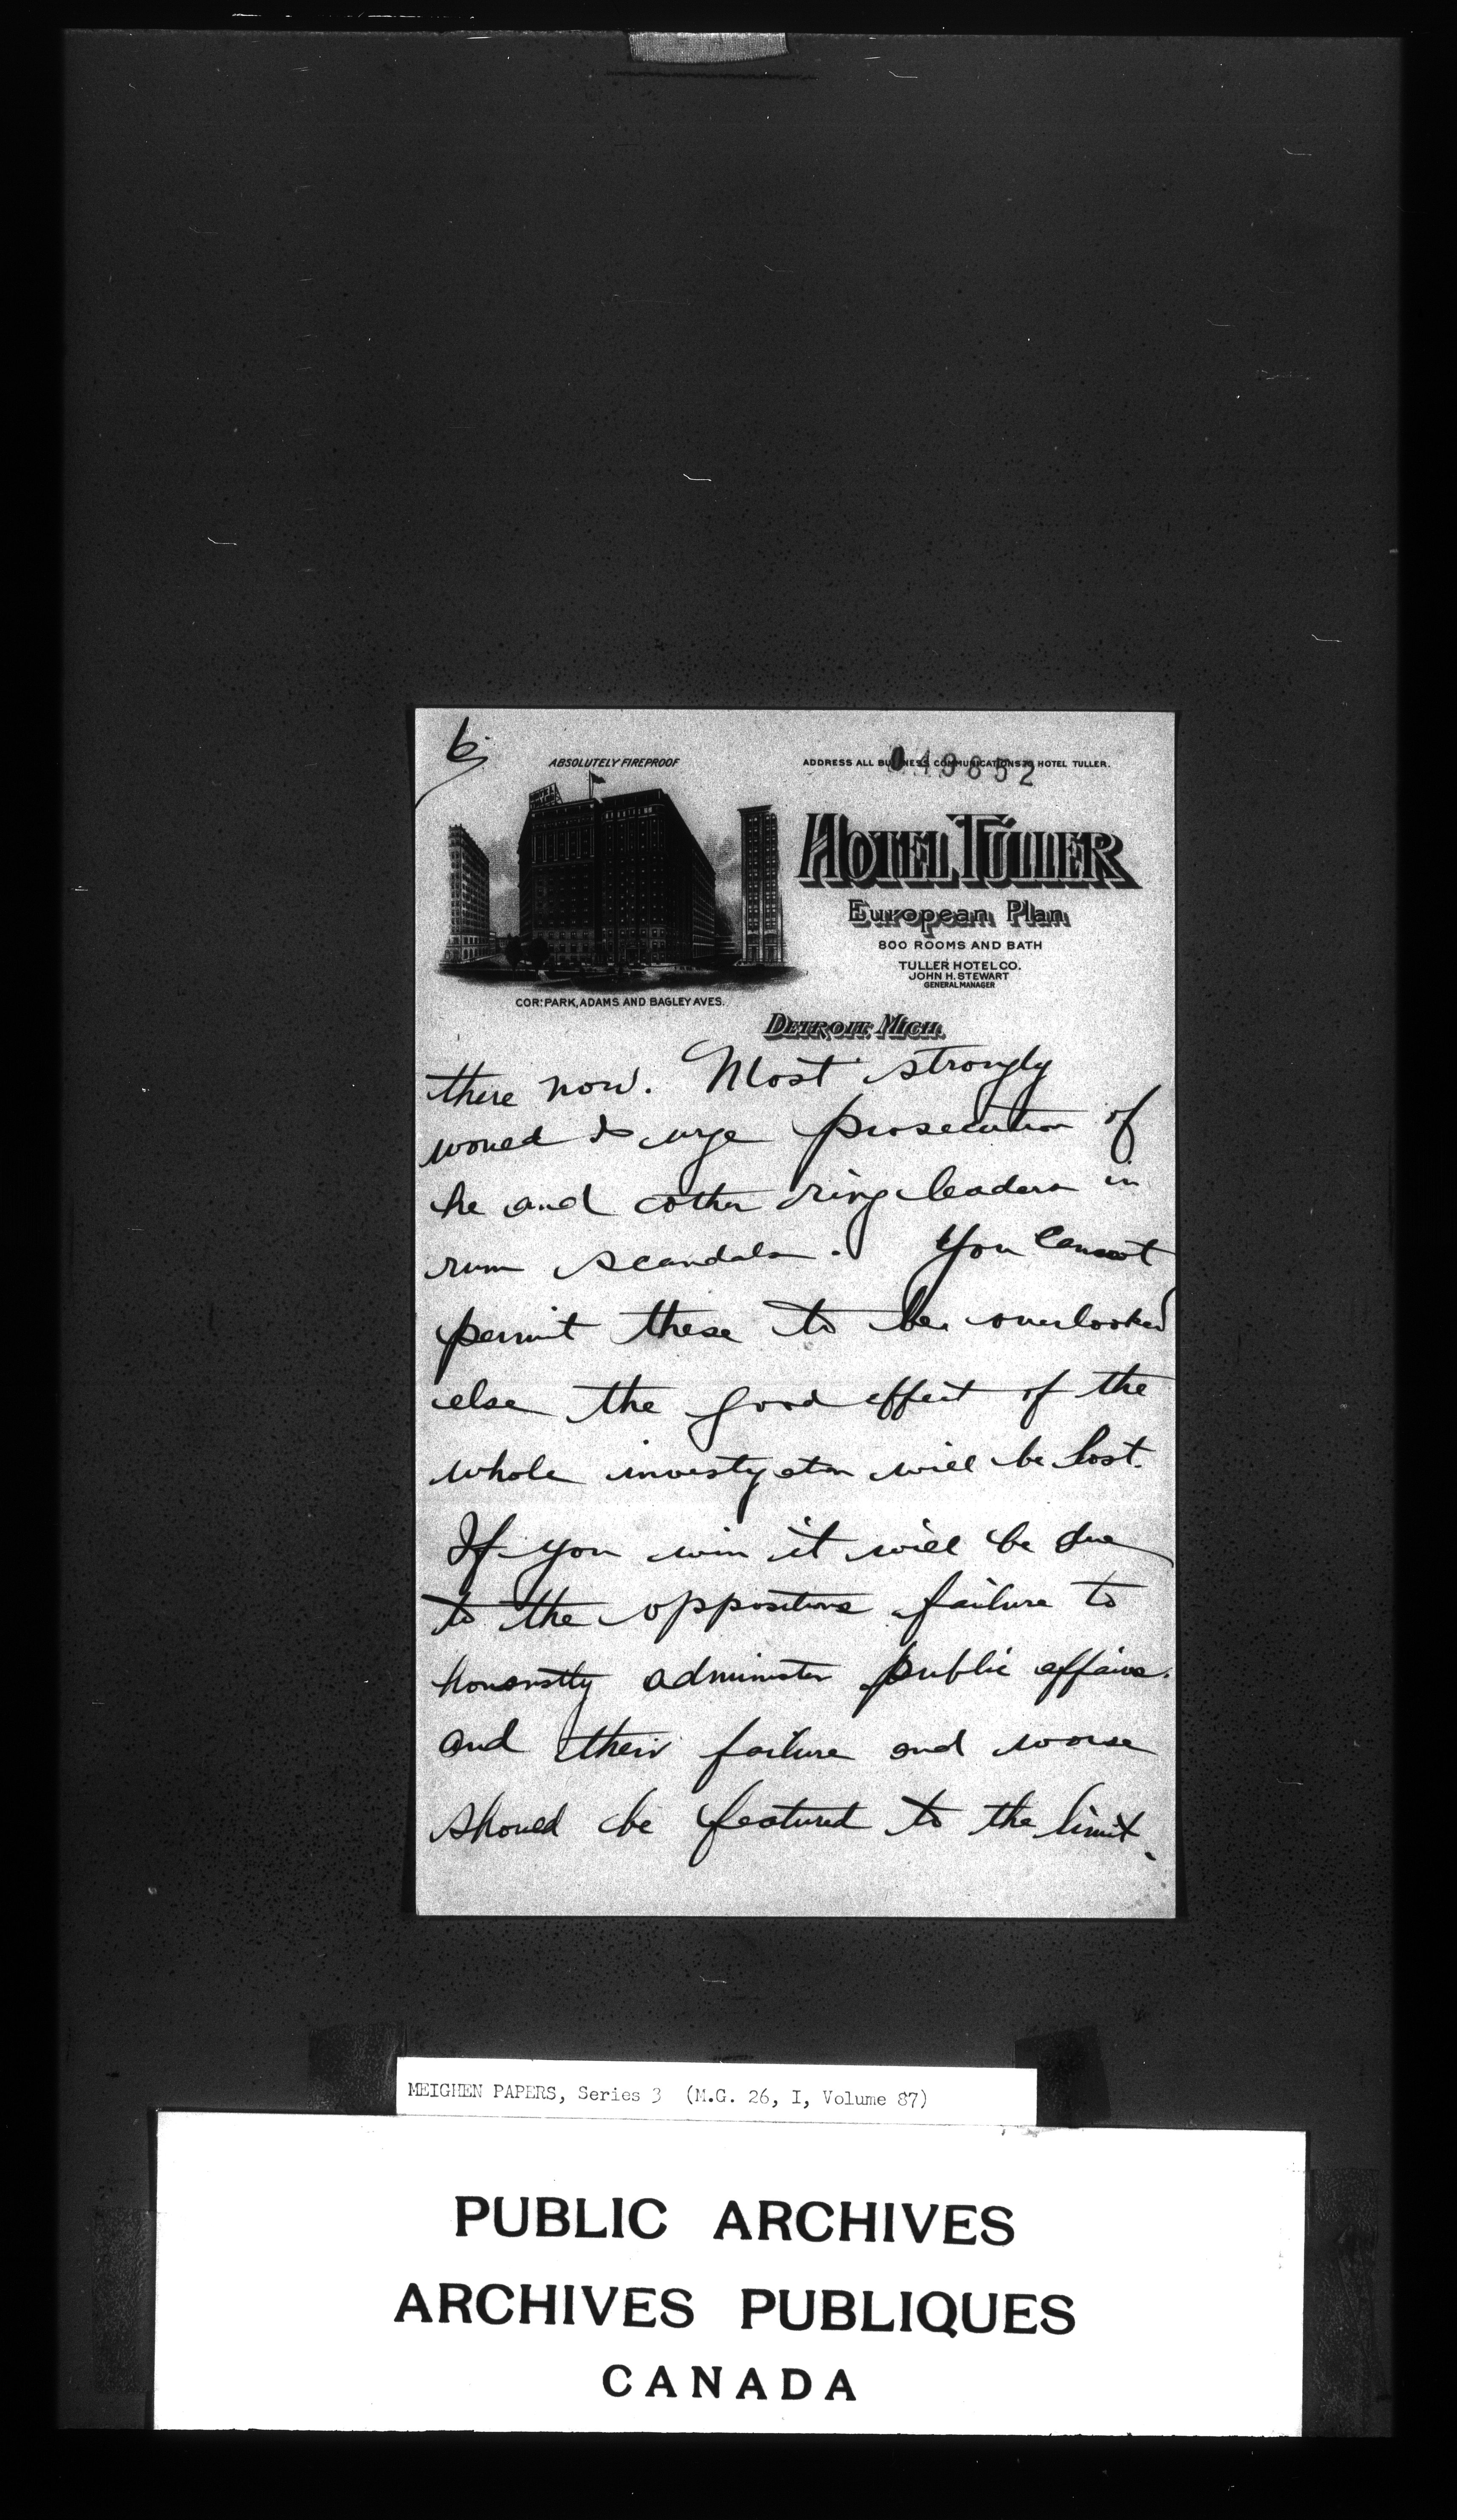 6
ABSOLUTELY FIREPROOF
ADDRESS ALL BUSINESS COMMUNICATIONS TO HOTEL TULLER.
049652
HOTEL TULLER
European Plan
800 ROOMS AND BATH
TULLER HOTEL CO.
JOHN H. STEWART
GENERAL MANAGER
COR: PARK, ADAMS AND BAGLEY AVES.
DETROIT, MICH.
there now. Most strongly
would I urge prosecution of
he and other ring leaders in
rum scandals. You cannot
permit these to be overlooked
else the good effect of the
whole investigation will be lost.
If you win it will be due
to the oppositions failure to
honorstly administer public affairs.
and their failure and worse
should be featured to the limit.
MEIGHEN PAPERS, Series 3 (M.G. 26, I, Volume 87)
PUBLIC ARCHIVES
ARCHIVES PUBLIQUES
CANADA